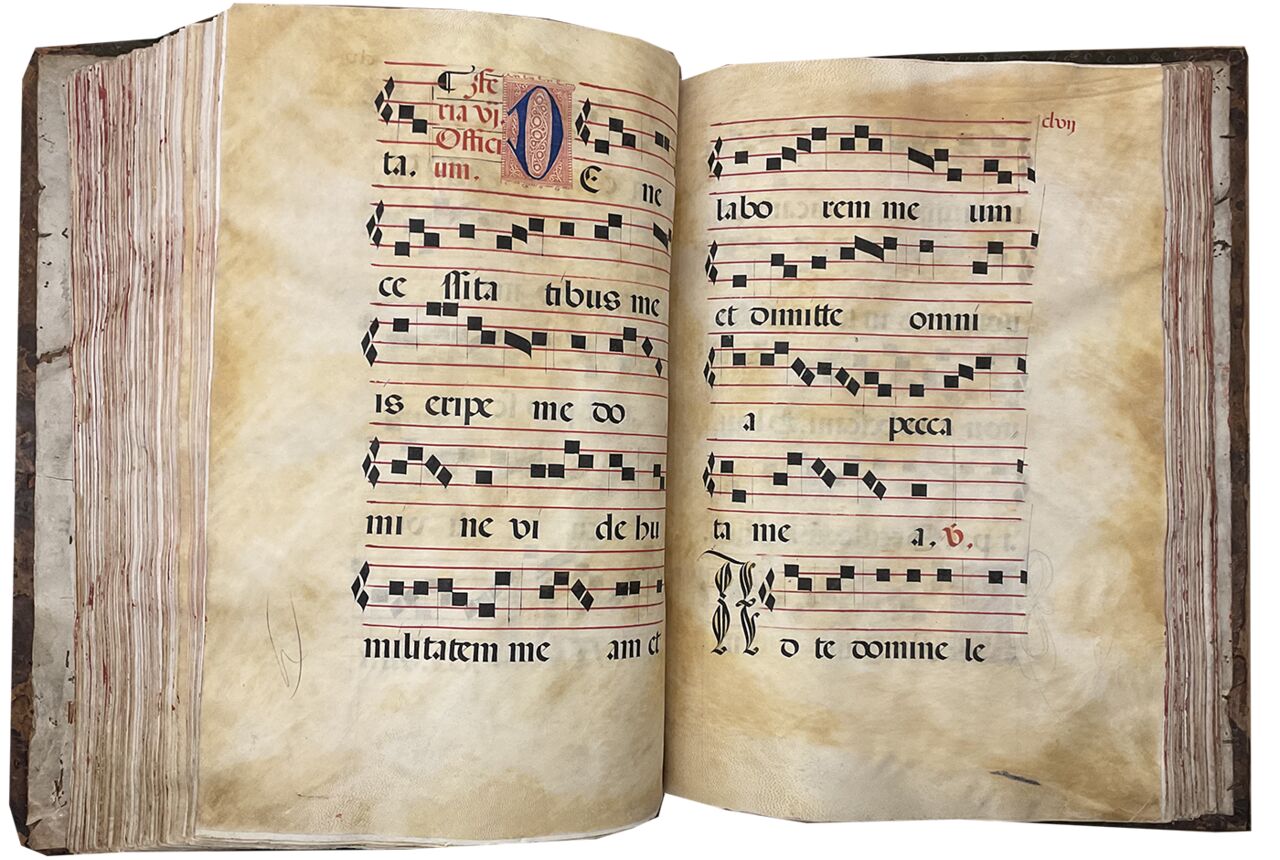 ¶ Fe
ria vj.
Offici
ta. um. DE ne
ce ssita tibus me
is eripe me do
mi ne vi de hu
militatem me am et
clvij
labo rem me um
et dimitte omni
a pecca
ta me a. ℣.
AD te domine le